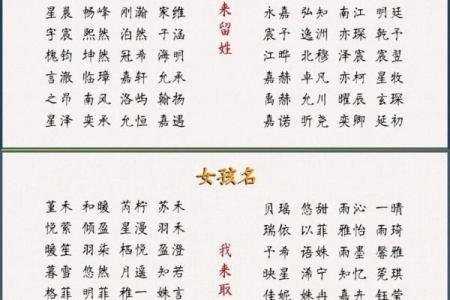 星晨 畅峰 刚瀚 家维
宇宸 熙然 泊然 子涵
槐钧 坤然 冠希 海明
言澈 临璋 嘉轩 允承
之昂 南风 洛屿 翰扬
星泽 奕承 允恒 嘉遇
来留姓
永嘉 弘知 南江 明廷
宸予 逸洲 亦琛 乾予
江晔 北穆 泽宸 宸翌
嘉赫 卓凡 亦柯 星牧
禹赫 允川 曜辰 玄琛
嘉诺 昕尧 奕卿 廷初
女孩名
堇禾 和暖 芮柠 苏禾
悦萦 倾盈 星漫 羽禾
暖笙 羽柒 栖悦 盈澄
暮雪 悠然 月遥 知若
格菲 明菲 稚一 姝言
我来取
贝瑶 悠甜 雨沁 一晴
瑞依 以菲 雅怡 雨琦
予希 语姝 雨墨 馨雅
映星 知忆
佳妮 钰莹